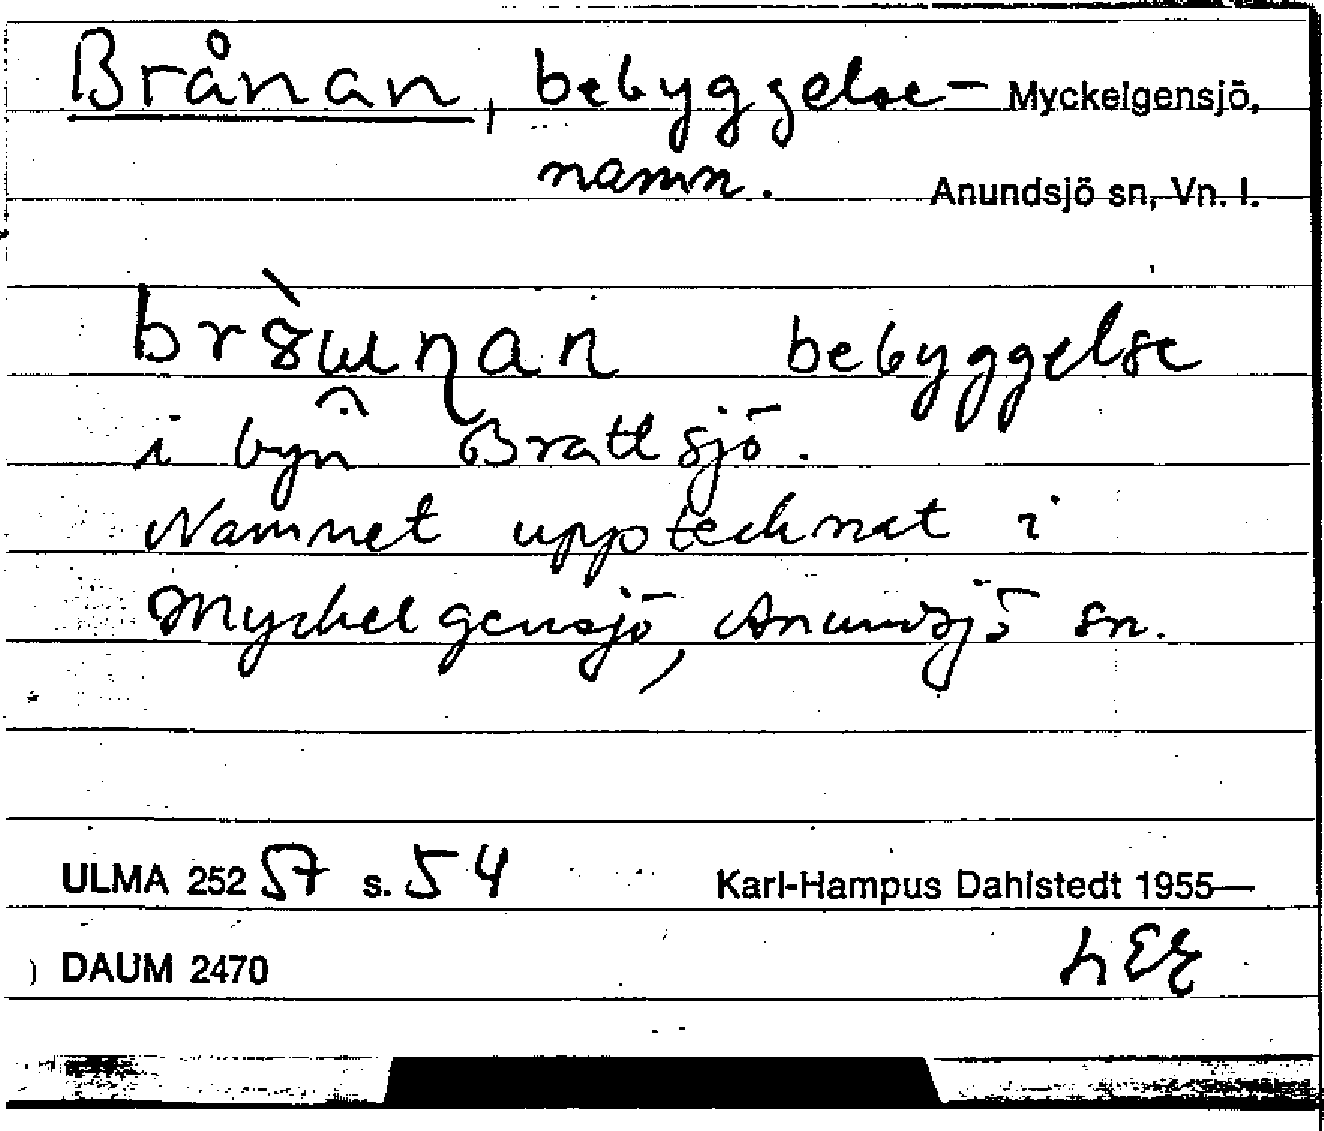 Brånan, bebyggelse- Myckelgensjö,
namn. Anundsjö sn, Vn. l.
bebyggelse
i byn Brattsjö.
Namnet upptecknat i
Myckelgensjö, Anundsjö sn.
ULMA 252 57 s. 54 Karl-Hampus Dahlstedt 1955—
) DAUM 2470